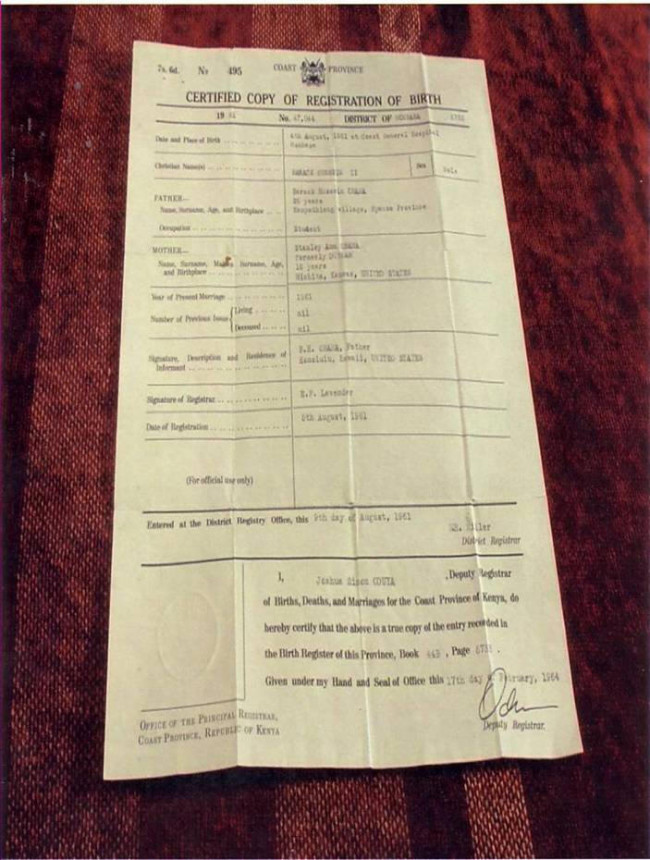 7s. 6d. No 495 COAST PROVINCE
CERTIFIED COPY OF REGISTRATION OF BIRTH
19 No. 47,044 DISTRICT OF
Date and Place of Birth 4th August, 1961 at Coast General Hospital
Christian Name(s) BARACK HUSSEIN II Sex Male
Barack Hussein OBAMA
FATHER— 26 years
Name, Surname, Age, and Birthplace village, Province
Occupation Student
MOTHER— Stanley Ann OBAMA
Name, Surname, Maiden Surname, Age, formerly DUNHAM
and Birthplace 18 years
Wichita, Kansas, UNITED STATES
Year of Present Marriage 1961
Number of Previous Issue { Living nil
Deceased nil
Signature, Description and Residence of B.H. OBAMA, Father
Informant Honolulu, Hawaii, UNITED STATES
Signature of Registrar E.F. Lavender
Date of Registration 5th August, 1961
(For official use only)
Entered at the District Registry Office, this 9th day of August, 1961
District Registrar
I, Joshua Simon ODUYA , Deputy Registrar
of Births, Deaths, and Marriages for the Coast Province of Kenya, do
hereby certify that the above is a true copy of the entry recorded in
the Birth Register of this Province, Book , Page .
Given under my Hand and Seal of Office this 17th day of February, 1964
Deputy Registrar.
OFFICE OF THE PRINCIPAL REGISTRAR,
COAST PROVINCE, REPUBLIC OF KENYA